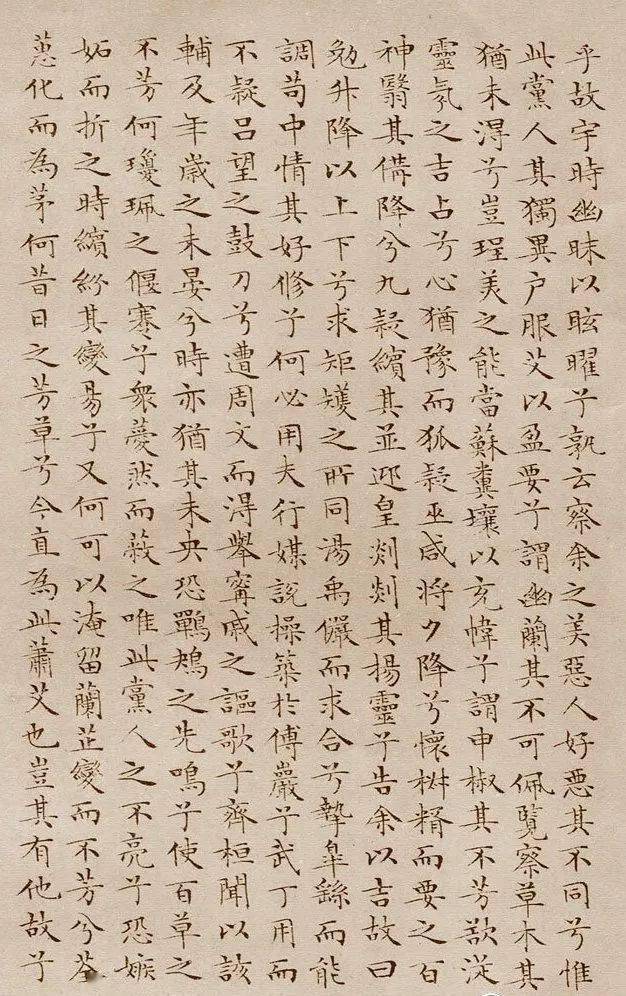 乎故宇時幽昧以眩曜兮孰云察余之美惡人好惡其不同兮惟
此黨人其獨異户服艾以盈要兮謂幽蘭其不可佩覽察草木其
猶未得兮豈珵美之能當蘇糞壤以充幃兮謂申椒其不芳欲從
靈氛之吉占兮心猶豫而狐疑巫咸將夕降兮懷椒糈而要之百
神翳其備降兮九疑繽其並迎皇剡剡其揚靈兮告余以吉故曰
勉升降以上下兮求矩矱之所同湯禹儼而求合兮摯皋繇而能
調苟中情其好修兮何必用夫行媒說操築於傅巖兮武丁用而
不疑吕望之鼓刀兮遭周文而得舉甯戚之謳歌兮齊桓聞以該
輔及年歲之未晏兮時亦猶其未央恐鷤鴂之先鳴兮使百草之
不芳何瓊珮之偃蹇兮衆薆然而蔽之唯此黨人之不亮兮恐嫉
妬而折之時繽紛其變易兮又何可以淹留蘭芷變而不芳兮荃
蕙化而為茅何昔日之芳草兮今直為此蕭艾也豈其有他故兮